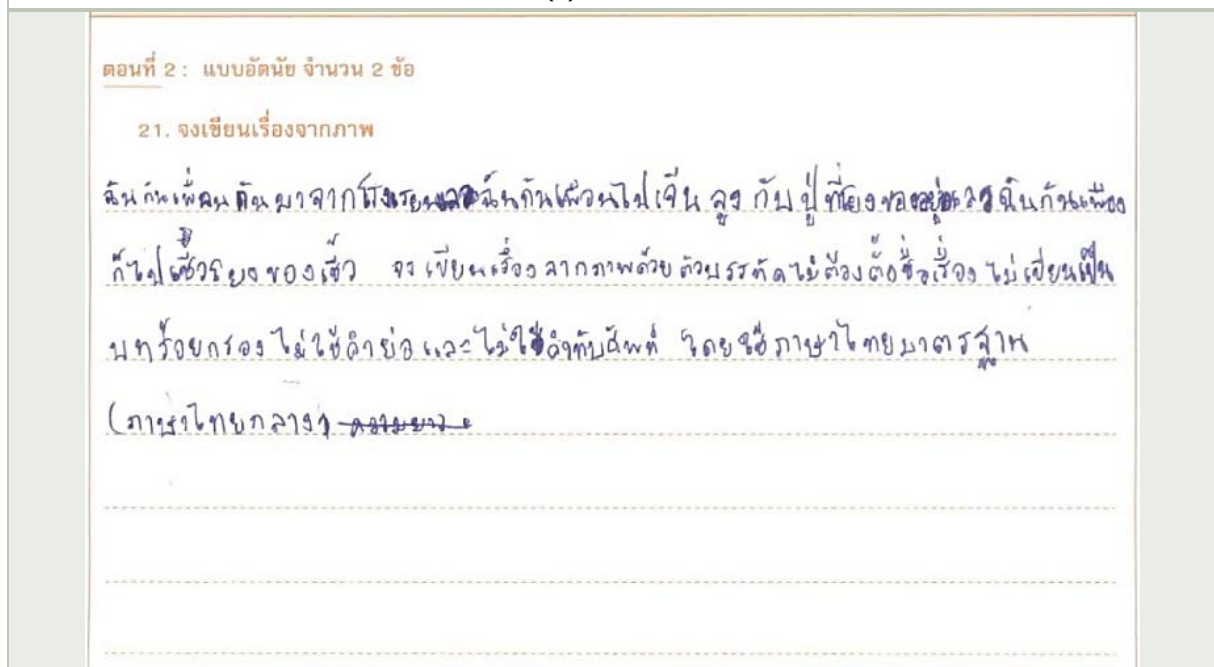 ตอนที่ 2 : แบบอัตนัย จำนวน 2 ข้อ
21. จงเขียนเรื่องจากภาพ
ฉันกันเพื่อนกันมาจากโรงเรียนฉันกันเพื่อนไปเจ็น ลุง กับ ปู่ ที่ของ ฉันกันเพื่อง
ก็ไป ของ จงเขียนเรื่องจากภาพด้วยตัวบรรทัดไม่ต้องตั้งชื่อเรื่อง ไม่เขียนเป็น
บทร้อยกรอง ไม่ใช้คำย่อ และไม่ใช้คำทับศัพท์ โดยใช้ภาษาไทยมาตรฐาน
(ภาษาไทยกลาง)